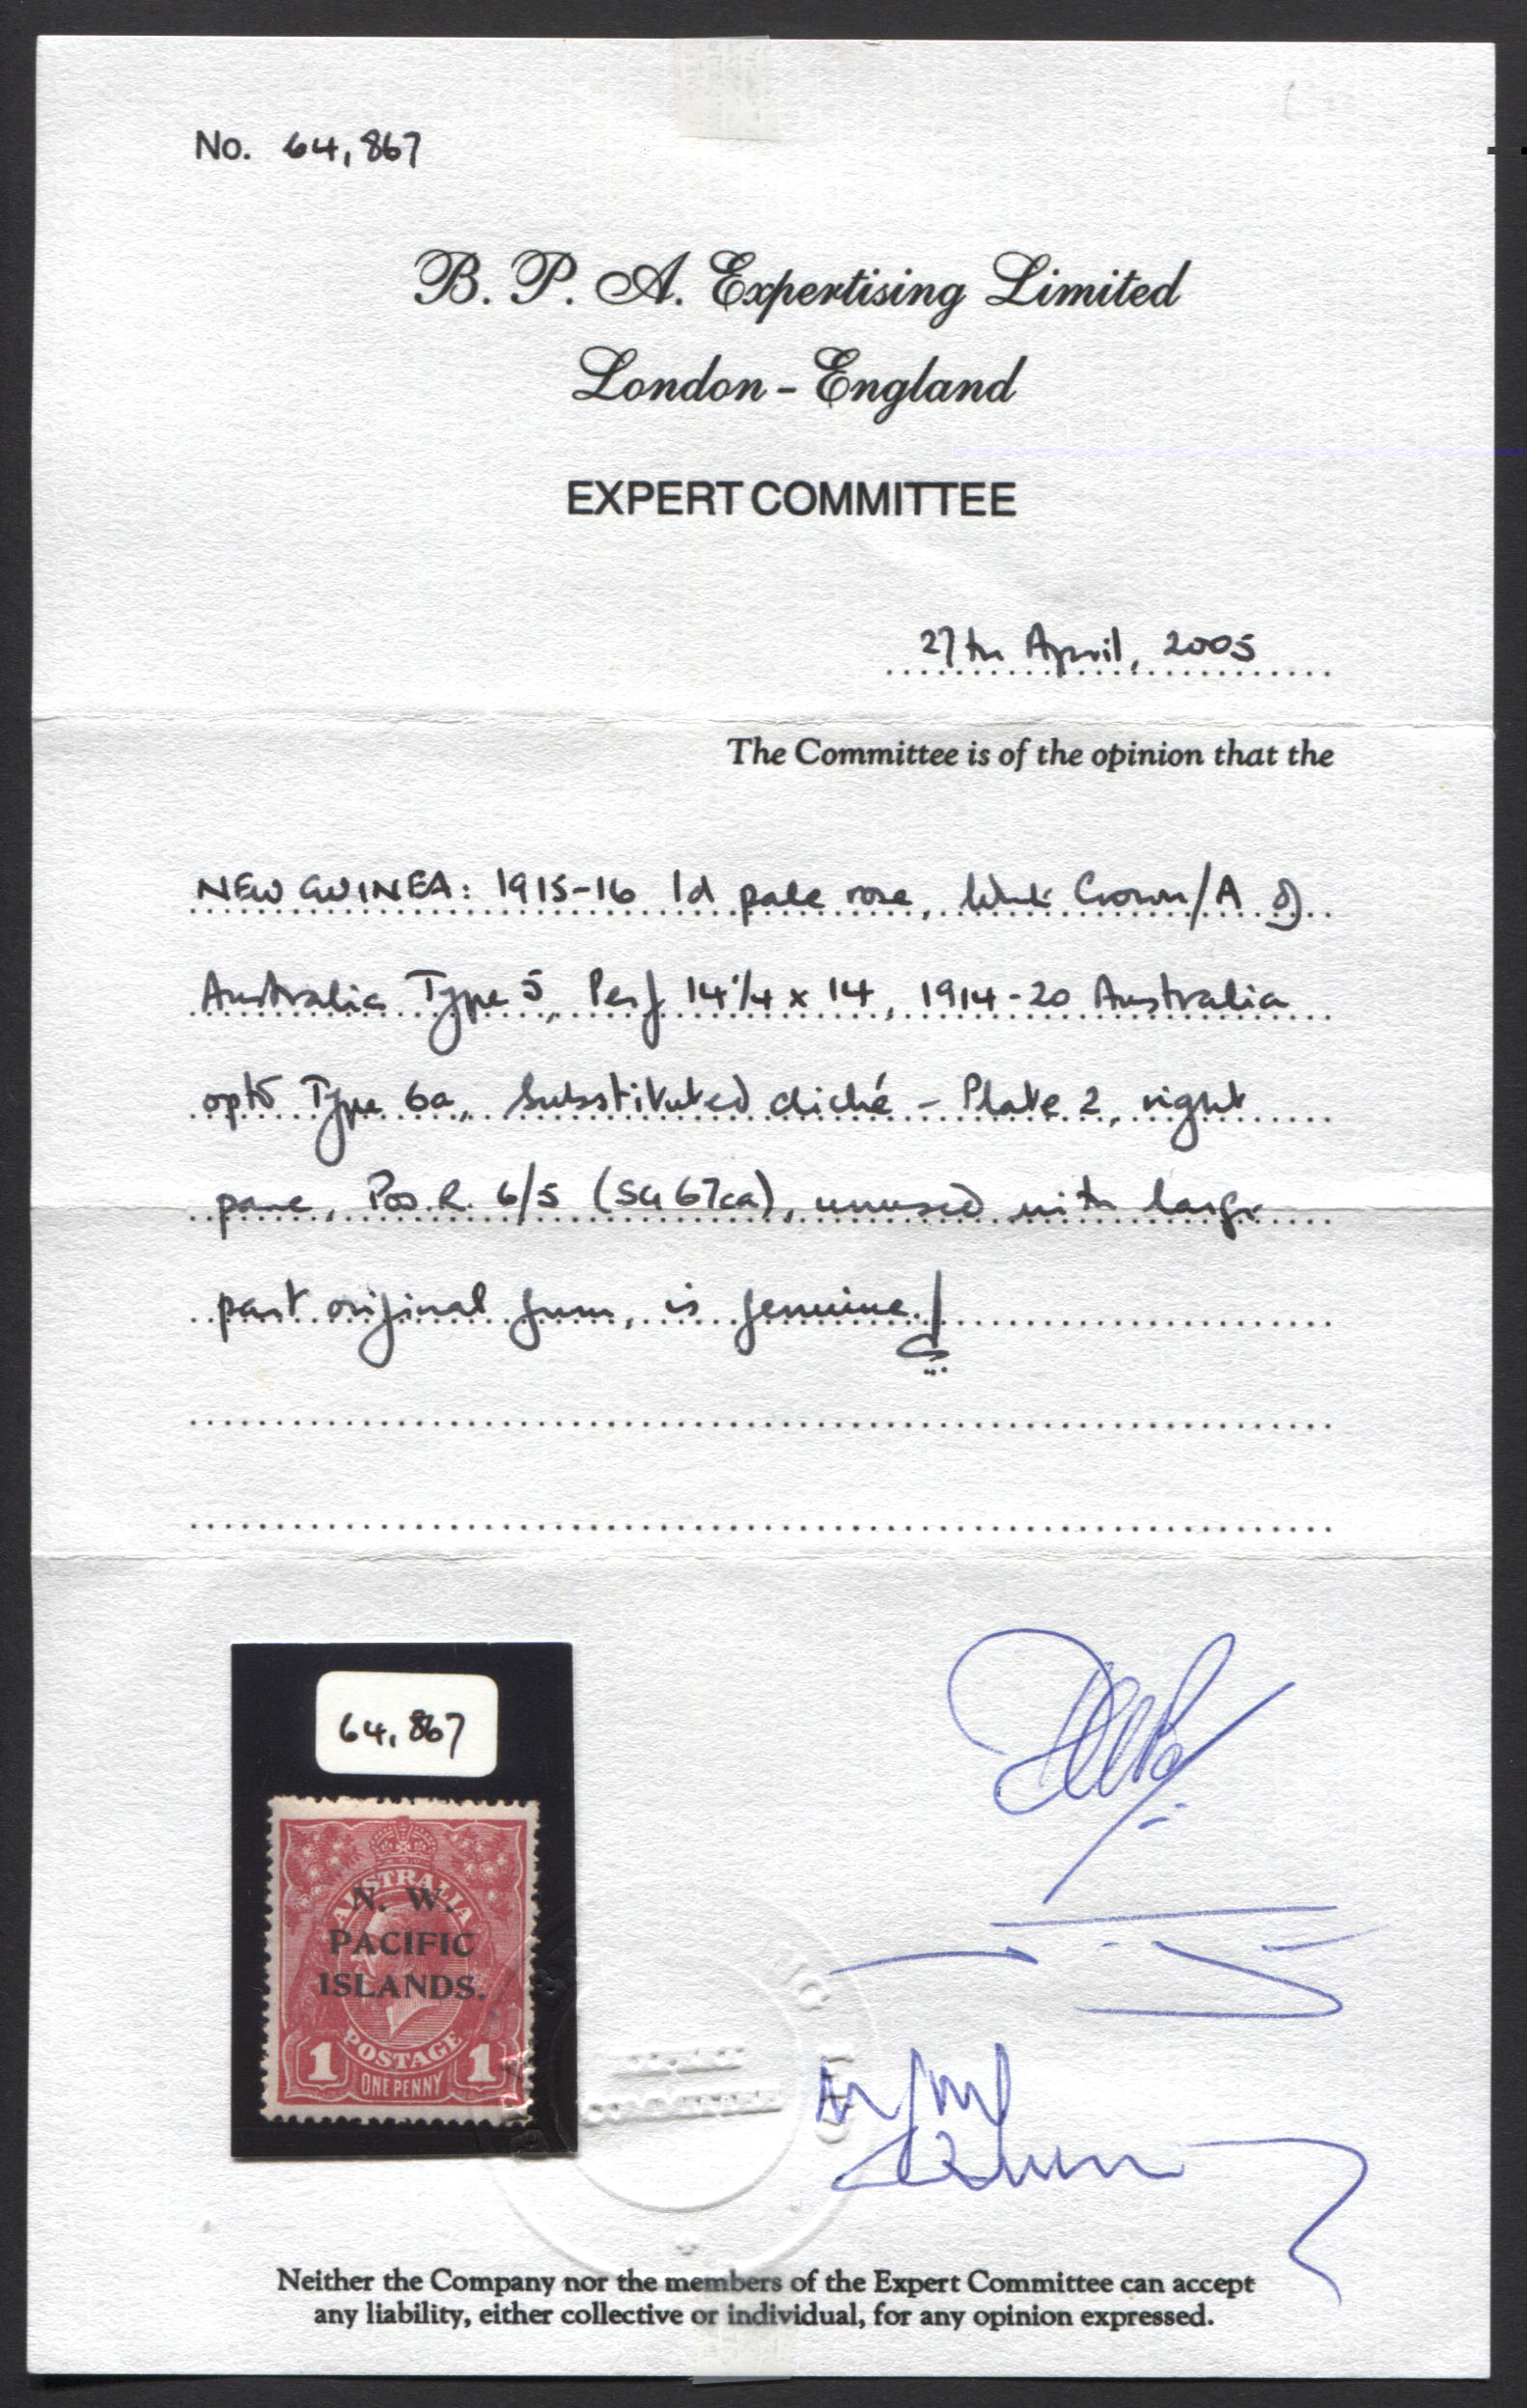 No. 64,867
B. P. A. Expertising Limited
London - England
EXPERT COMMITTEE
27th April, 2005
The Committee is of the opinion that the
NEW GUINEA: 1915-16 1d pale rose, Wmk Crown/A of
Australia Type 5, Perf 14¼ x 14, 1914-20 Australia
optd Type 6a, Substituted cliché - Plate 2, right
pane, Pos. R. 6/5 (SG 67ca), unused with large
part original gum, is genuine.
64,867
AUSTRALIA
N. W.
PACIFIC
ISLANDS.
POSTAGE
1 1
ONE PENNY
COMMITTEE
Neither the Company nor the members of the Expert Committee can accept
any liability, either collective or individual, for any opinion expressed.